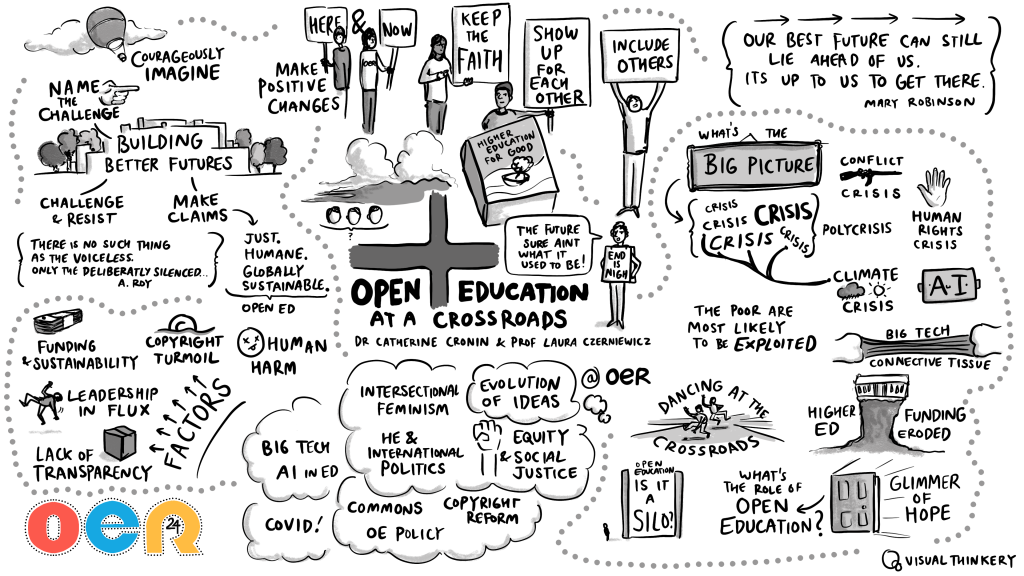 COURAGEOUSLY
IMAGINE
NAME
THE
CHALLENGE
BUILDING
BETTER FUTURES
CHALLENGE
& RESIST
MAKE
CLAIMS
THERE IS NO SUCH THING
AS THE VOICELESS.
ONLY THE DELIBERATLY SILENCED..
A. ROY
JUST.
HUMANE.
GLOBALLY
SUSTAINABLE.
OPEN ED
HERE
&
NOW
MAKE
POSITIVE
CHANGES
KEEP
THE
FAITH
SHOW
UP
FOR
EACH
OTHER
INCLUDE
OTHERS
HIGHER
EDUCATION
FOR GOOD
?
THE FUTURE
SURE AINT
WHAT IT
USED TO BE!
END
IS
NIGH
OPEN EDUCATION
AT A CROSSROADS
DR CATHERINE CRONIN & PROF LAURA CZERNIEWICZ
OUR BEST FUTURE CAN STILL
LIE AHEAD OF US.
ITS UP TO US TO GET THERE.
MARY ROBINSON
WHAT'S THE
BIG PICTURE
CRISIS
CRISIS
CRISIS
CRISIS
CRISIS
POLYCRISIS
CONFLICT
CRISIS
HUMAN
RIGHTS
CRISIS
CLIMATE
CRISIS
AI
THE POOR ARE
MOST LIKELY
TO BE EXPLOITED
BIG TECH
CONNECTIVE TISSUE
FUNDING
& SUSTAINABILITY
COPYRIGHT
TURMOIL
HUMAN
HARM
LEADERSHIP
IN FLUX
LACK OF
TRANSPARENCY
FACTORS
BIG TECH
AI IN ED
COVID!
INTERSECTIONAL
FEMINISM
EVOLUTION
OF IDEAS
@ OER
HE &
INTERNATIONAL
POLITICS
EQUITY
& SOCIAL
JUSTICE
COMMONS
OE POLICY
COPYRIGHT
REFORM
DANCING AT THE
CROSSROADS
HIGHER
ED
FUNDING
ERODED
OPEN
EDUCATION
IS IT
A
SILO?
WHAT'S
THE ROLE OF
OPEN
EDUCATION?
GLIMMER
OF
HOPE
OER
24
VISUAL THINKERY